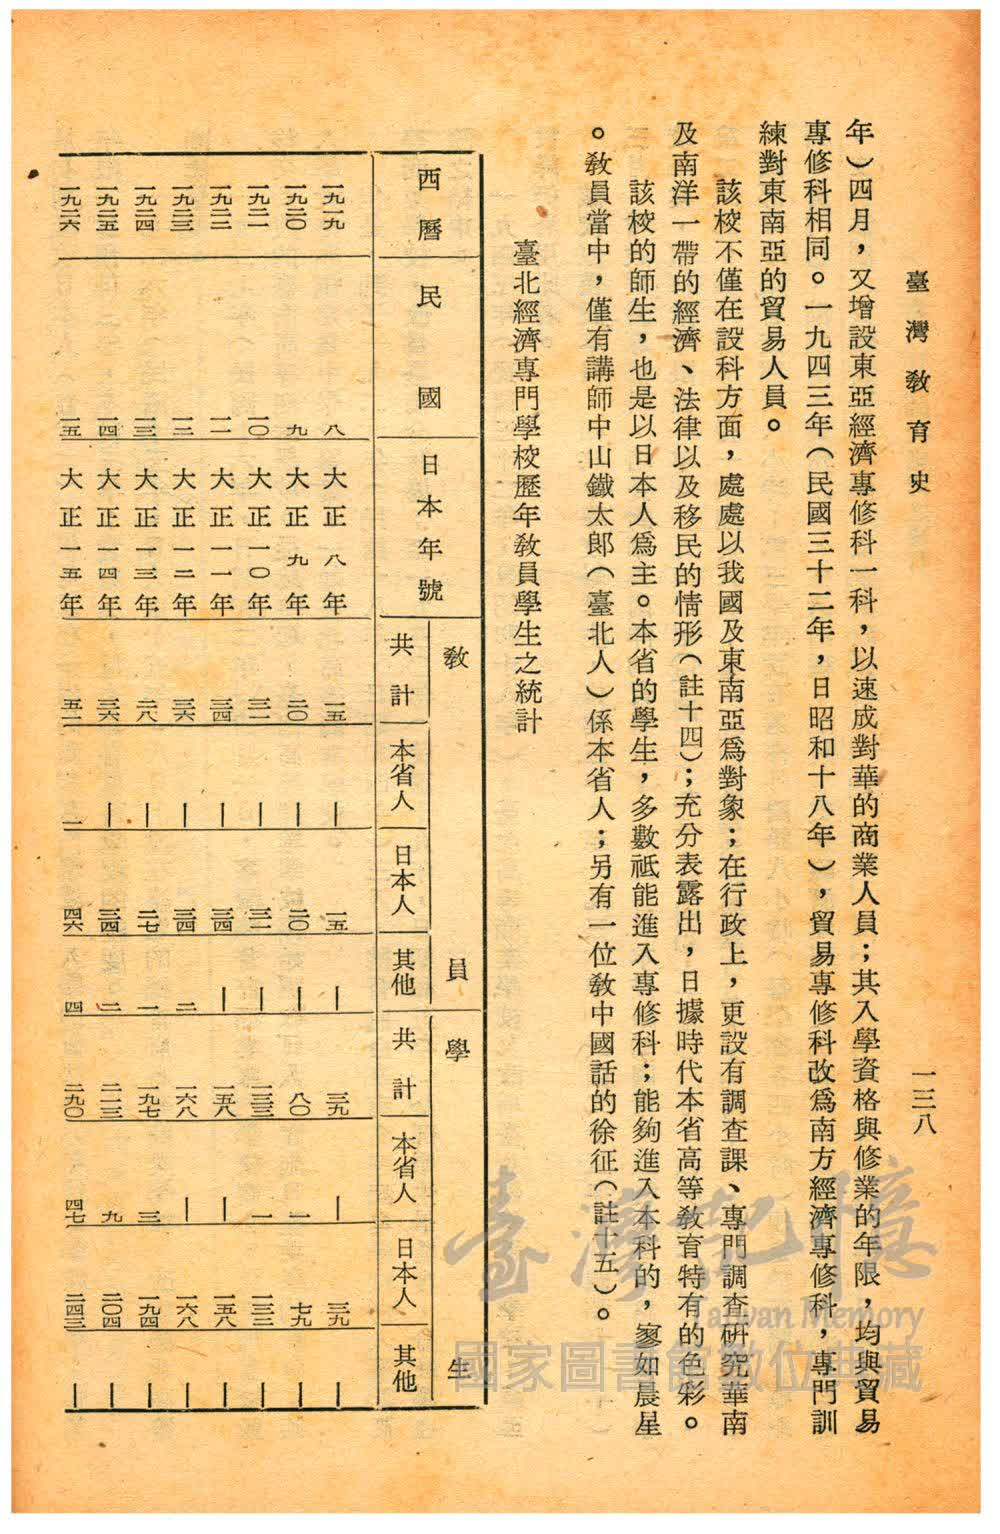 臺灣教育史
一三八
年）四月，又增設東亞經濟專修科一科，以速成對華的商業人員；其入學資格與修業的年限，均與貿易
專修科相同。一九四三年（民國三十二年，日昭和十八年），貿易專修科改爲南方經濟專修科，專門訓
練對東南亞的貿易人員。
該校不僅在設科方面，處處以我國及東南亞爲對象；在行政上，更設有調查課、專門調查研究華南
及南洋一帶的經濟、法律以及移民的情形（註十四）；充分表露出，日據時代本省高等教育特有的色彩。
該校的師生，也是以日本人爲主。本省的學生，多數祗能進入專修科；能夠進入本科的，寥如晨星
。教員當中，僅有講師中山鐵太郎（臺北人）係本省人；另有一位教中國話的徐征（註十五）。
臺北經濟專門學校歷年教員學生之統計
教員 學生
西曆 民國 日本年號 共計 本省人 日本人 其他 共計 本省人 日本人 其他
一九一九 八 大正八年 一五 — 一五 — 三九 — 三九 —
一九二〇 九 大正九年 二〇 — 二〇 — 八〇 一 七九 —
一九二一 一〇 大正一〇年 三一 — 三一 — 一三三 一 一三二 —
一九二二 一一 大正一一年 三四 — 三四 — 一五八 — 一五八 —
一九二三 一二 大正一二年 三六 — 三四 二 一六八 — 一六八 —
一九二四 一三 大正一三年 二八 — 二七 一 一九七 三 一九四 —
一九二五 一四 大正一四年 三六 — 三四 二 二一三 九 二〇四 —
一九二六 一五 大正一五年 五一 一 四六 四 二九〇 四七 二四三 —
臺灣記憶
Taiwan Memory
國家圖書館數位典藏